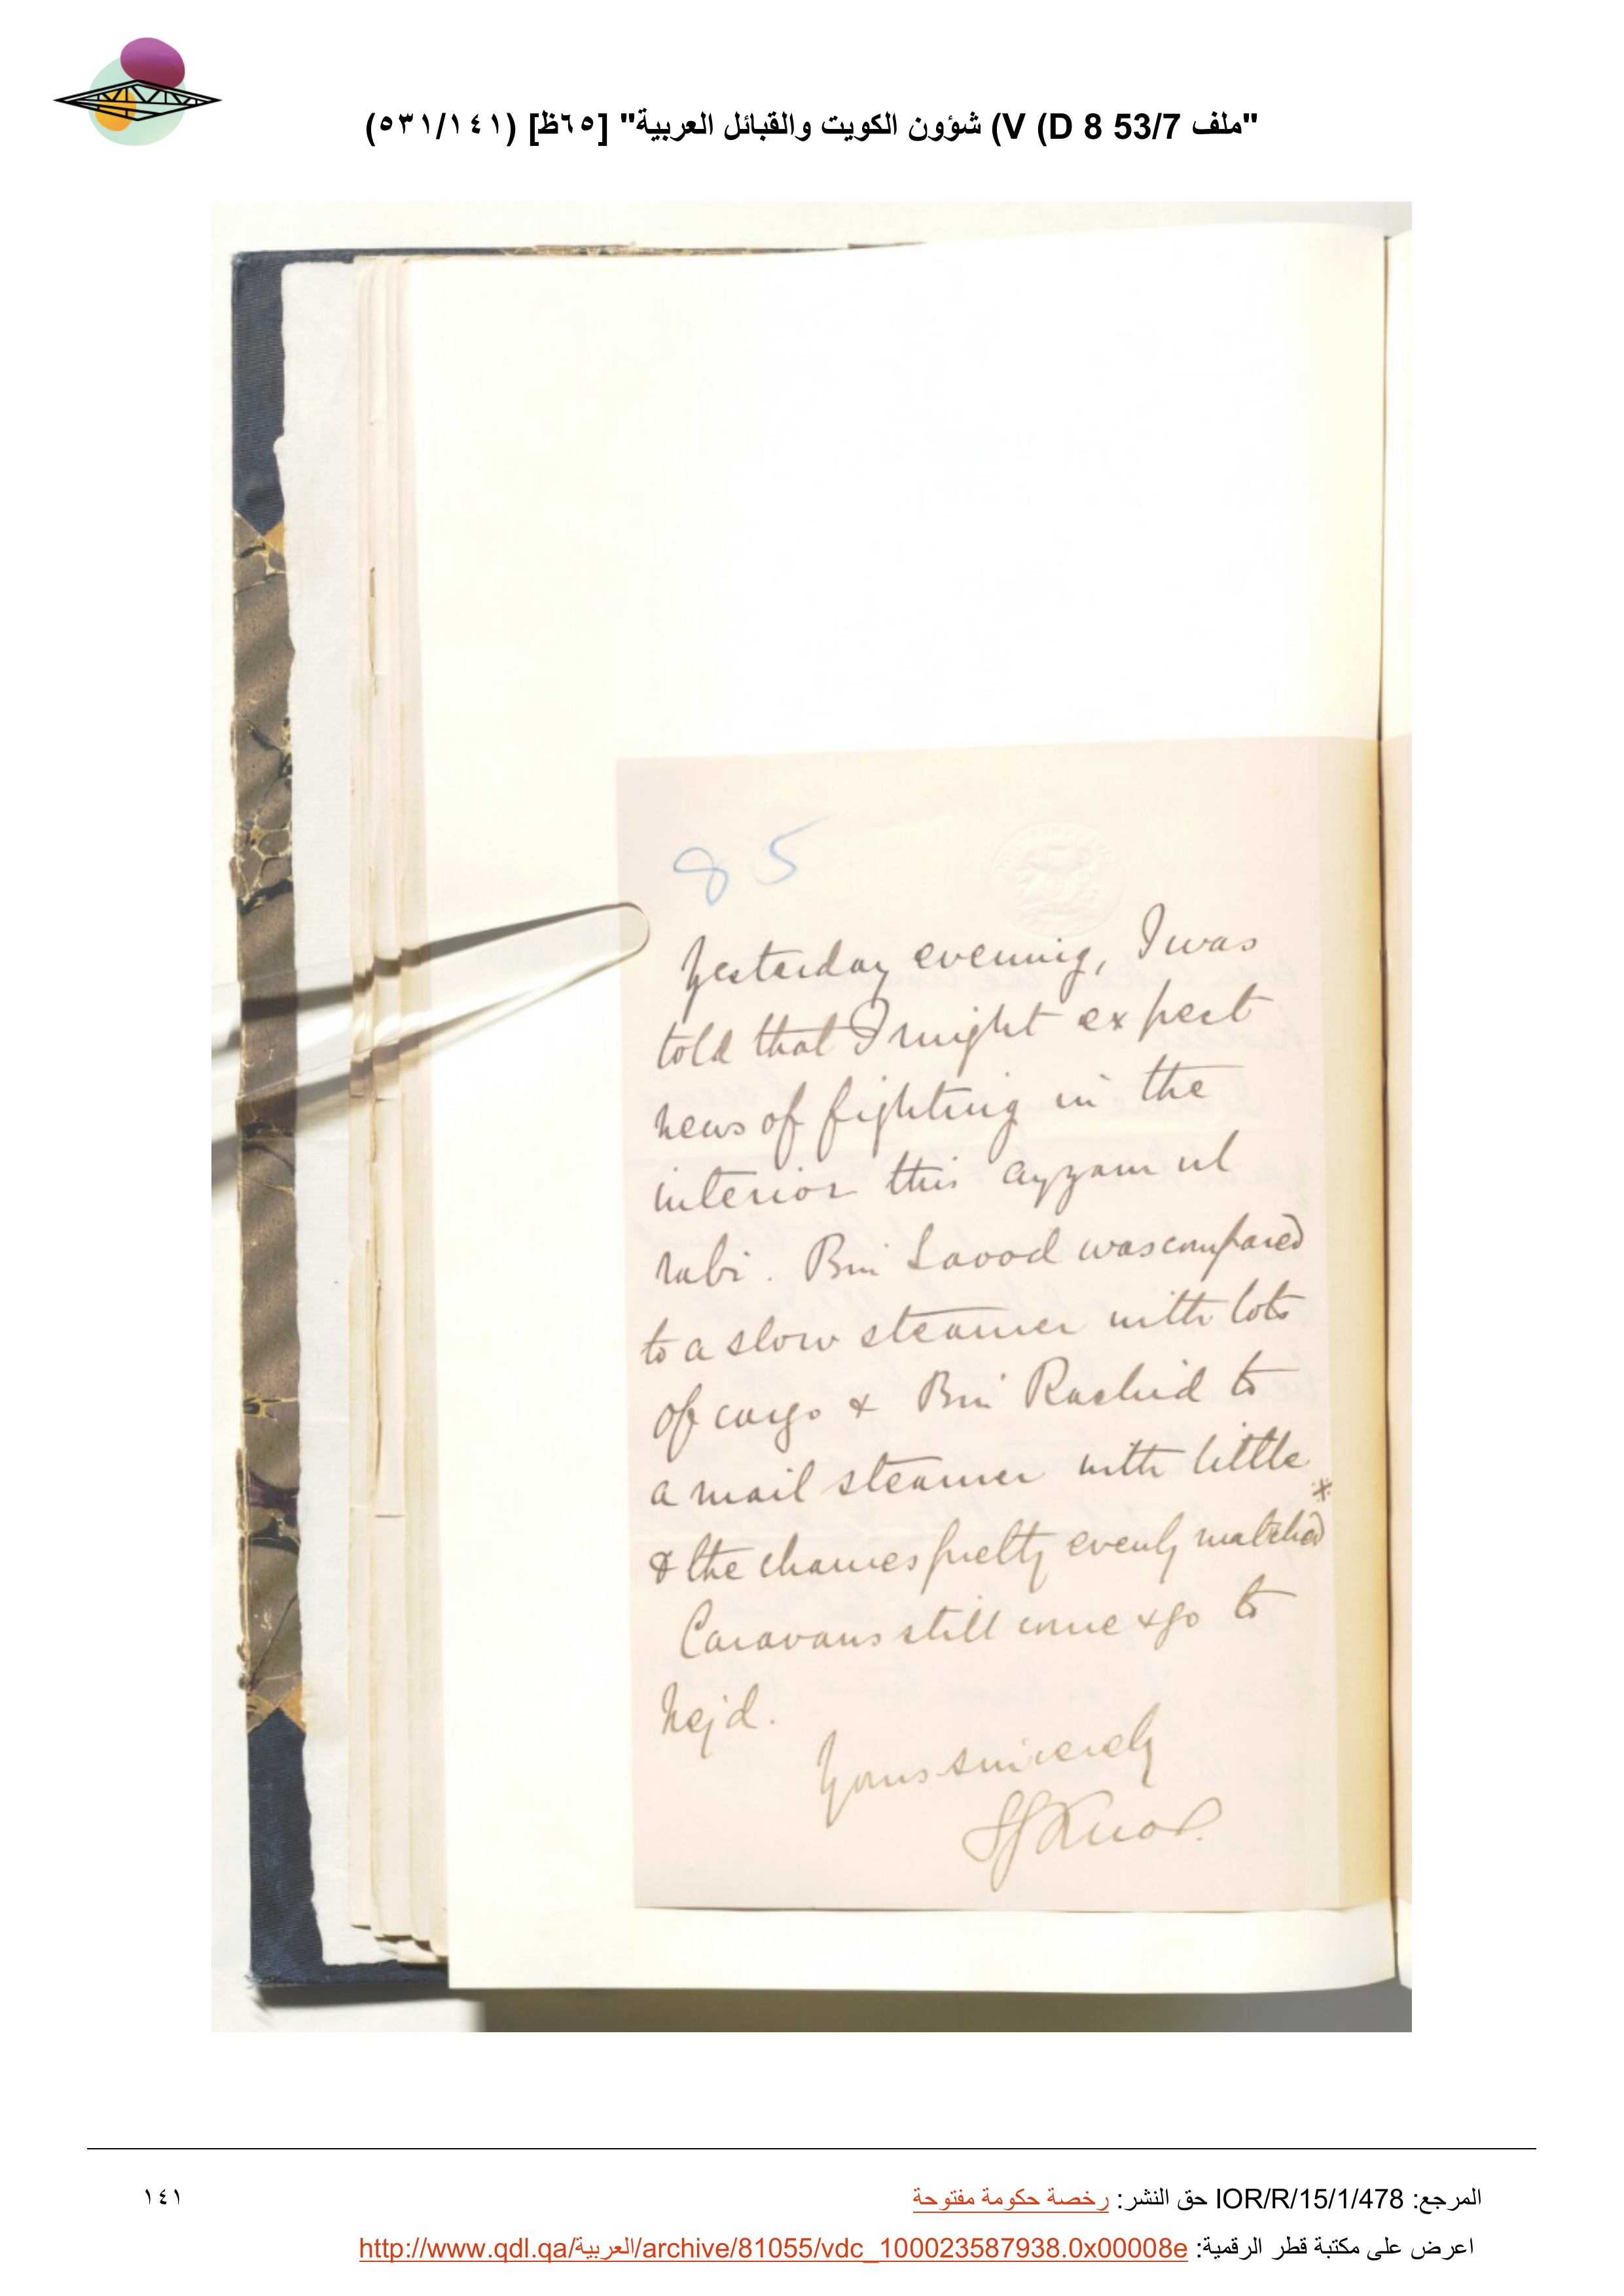 "ملف 53/7 D 8) V) شؤون الكويت والقبائل العربية" [٦٥ظ] (٥٣١/١٤١)
85
Yesterday evening, I was
told that I might expect
news of fighting in the
interior this ayyam ul
rabi. Bin Saood was compared
to a slow steamer with lots
of cargo & Bin Rashid to
a mail steamer with little
& the chances pretty evenly matched*
Caravans still come & go to
Nejd.
Yours sincerely
SGKnox.
المرجع: IOR/R/15/1/478 حق النشر: رخصة حكومة مفتوحة
١٤١
اعرض على مكتبة قطر الرقمية: http://www.qdl.qa/العربية/archive/81055/vdc_100023587938.0x00008e